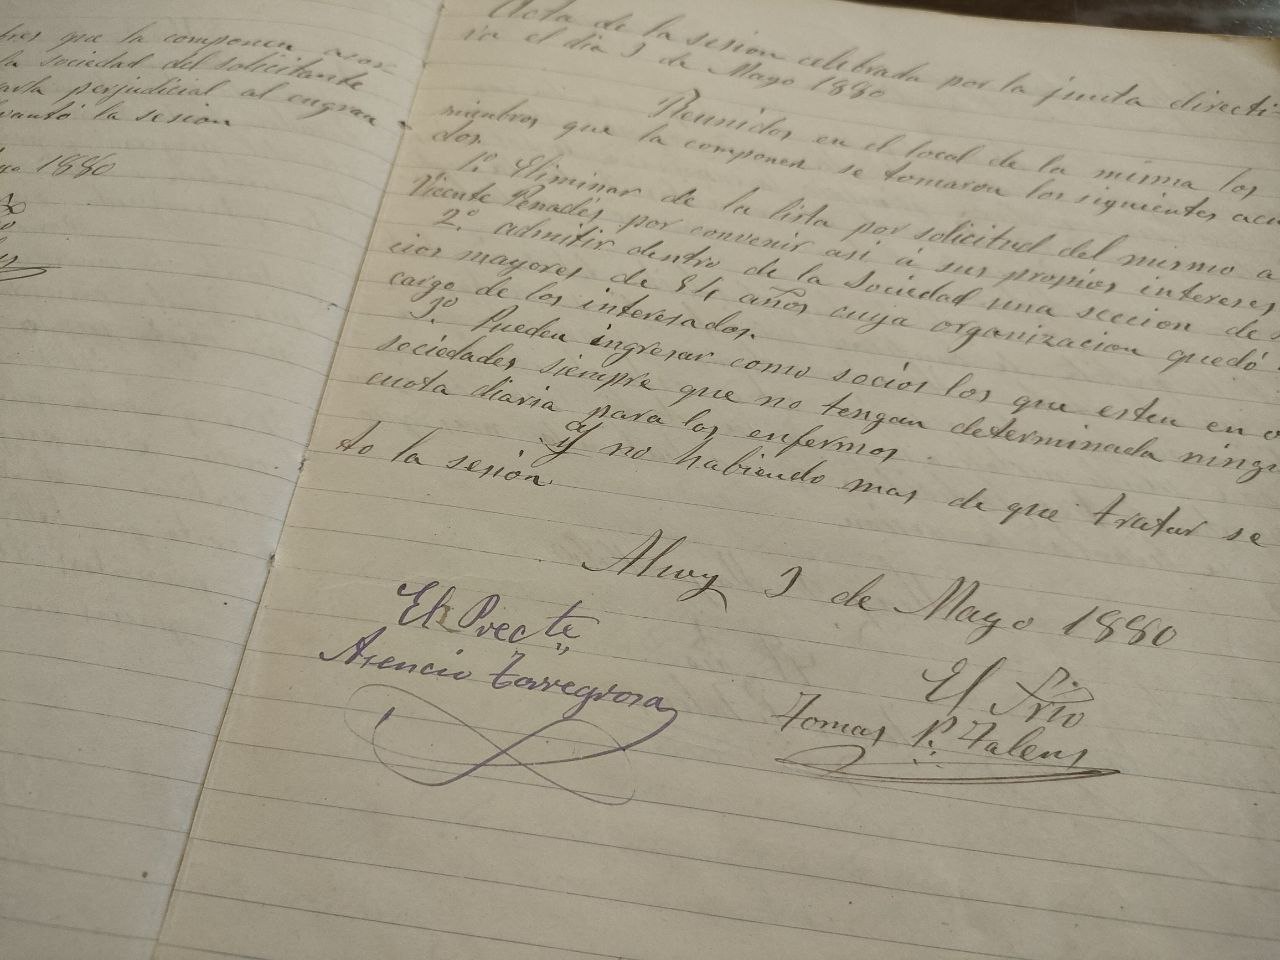 bres que la componen
la sociedad del solicitante
perjudicial al engran
vantó la sesion
1880
Acta de la sesion celebrada por la junta directi
va el dia 3 de Mayo 1880
Reunidos en el local de la misma los
miembros que la componen se tomaron los siguientes acu
dos.
1.º Eliminar de la lista por solicitud del mismo a
Vicente Penadés por convenir asi á sus propios intereses
2.º admitir dentro de la Sociedad una seccion de
cios mayores de años cuya organizacion quedó
cargo de los interesados.
3.º Pueden ingresar como socios los que esten en o
sociedades siempre que no tengan determinada ningu
cuota diaria para los enfermos.
Y no habiendo mas de que tratar se
to la sesion.
3 de Mayo 1880
El Srio
Tomas P. Talens
El Precte
Asencio Torregrosa